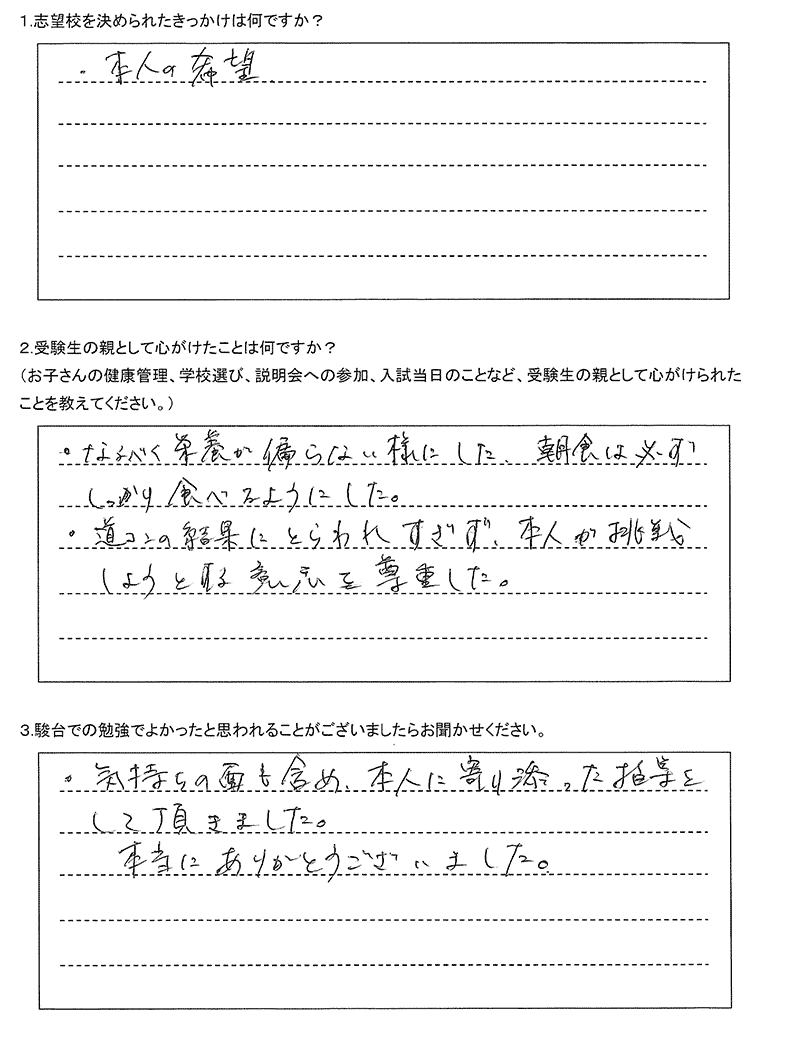 1.志望校を決められたきっかけは何ですか？
・本人の希望
2.受験生の親として心がけたことは何ですか？
（お子さんの健康管理、学校選び、説明会への参加、入試当日のことなど、受験生の親として心がけられた
ことを教えてください。）
・なるべく栄養が偏らない様にした、朝食は必ず
しっかり食べるようにした。
・道コンの結果にとらわれすぎず、本人が挑戦
しようとする意志を尊重した。
3.駿台での勉強でよかったと思われることがございましたらお聞かせください。
・気持ちの面も含め、本人に寄り添った指導を
して頂きました。
本当にありがとうございました。